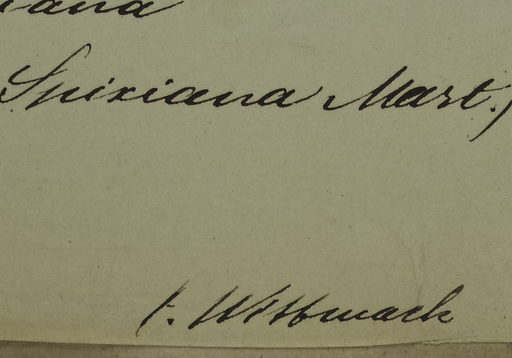 iana
Spixiana Mart.)
t. Wittmack